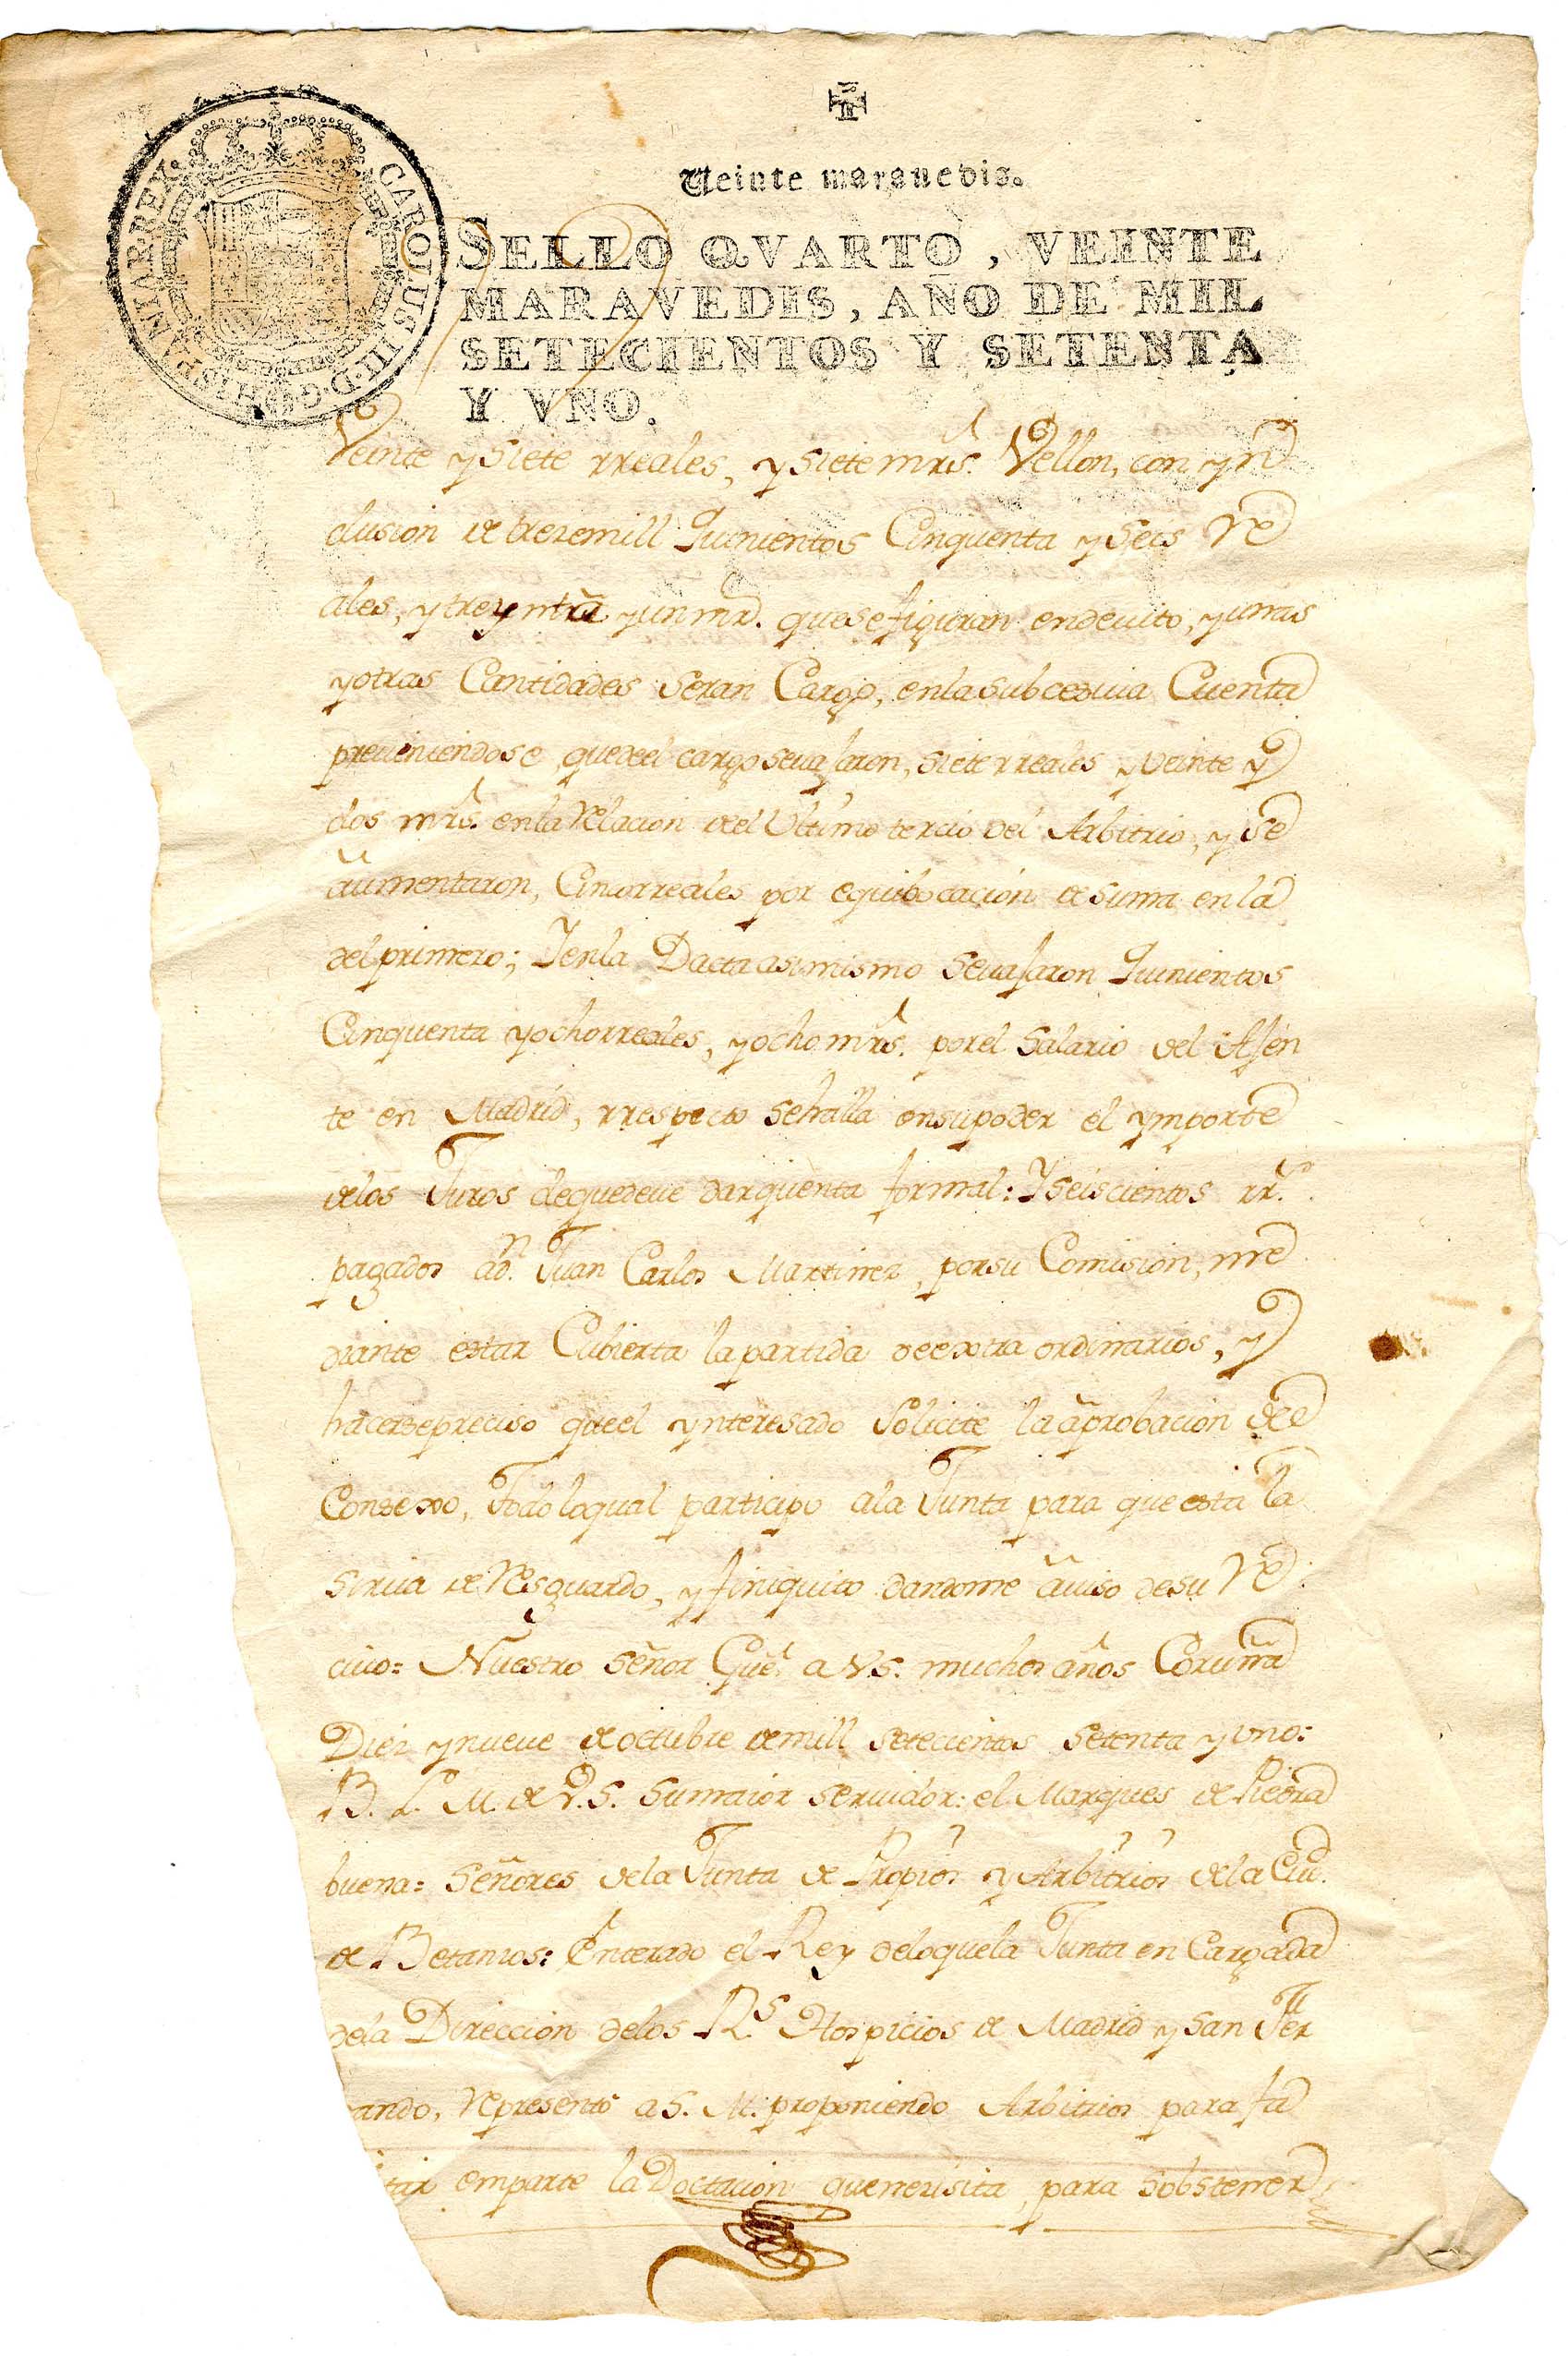 CAROLUS III D G HISPANIAR REX
Veinte maravedis.
SELLO QVARTO, VEINTE
MARAVEDIS, AÑO DE MIL
SETECIENTOS Y SETENTA
Y VNO.
Veinte y siete rreales, y siete mrs. Vellon, con yn
clusion de trezemill Quinientos Cinquenta y Seis Re
ales, y treyntra y un mrd. que se figuran en devito, y unas
y otras Cantidades seran Cargo, en la subcesiva Cuenta
previniendose que de el cargo se vajaron, siete rreales y veinte y
dos mrs. en la Relacion de el Ultimo tercio del Arbitrio, y se
aumentaron, Cincorreales por equibocación de suma en la
del primero; Y en la Dacta asimismo se vajaron Quinientos
Cinquenta y ochorreales, y ocho mrs. por el Salario del Ajen
te en Madrid, rrespecto se halla en su poder el ymporte
de los Juros de que deve dar quenta formal: Y seiscientos rr.s
pagados a Dn. Juan Carlos Martinez, por su Comision, me
diante estar Cubierta la partida de extra ordinarios, y
hacerse preciso que el ynteresado Solicite la aprobacion de e
Consexo, Todo lo qual participo a la Junta para que esta la
sirva de Resguardo, y finiquito dandome aviso de su Re
civo= Nuestro Señor Gue. a V.S. muchos años Coruña
Diez y nueve de octubre de mill setecientos setenta y uno:
B. L. M. de V.S. su maior servidor: el Marques de Piedra
buena= Señores de la Junta de Propios y Arbitrios de la Ciud.
de Betanzos: Enterado el Rey de lo que la Junta en Cargada
de la Direccion de los R.s Hospicios de Madrid y San Fer
ando, represento a S. M. proponiendo Arbitrios para fa
tar emparte la Doctacion que nezesita, para sobstener